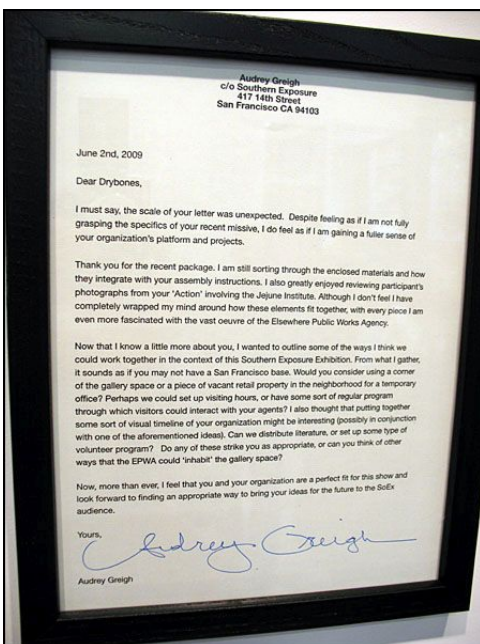 Audrey Greigh
c/o Southern Exposure
417 14th Street
San Francisco CA 94103
June 2nd, 2009
Dear Drybones,
I must say, the scale of your letter was unexpected. Despite feeling as if I am not fully
grasping the specifics of your recent missive, I do feel as if I am gaining a fuller sense of
your organization's platform and projects.
Thank you for the recent package. I am still sorting through the enclosed materials and how
they integrate with your assembly instructions. I also greatly enjoyed reviewing participant's
photographs from your 'Action' involving the Jejune Institute. Although I don't feel I have
completely wrapped my mind around how these elements fit together, with every piece I am
even more fascinated with the vast oeuvre of the Elsewhere Public Works Agency.
Now that I know a little more about you, I wanted to outline some of the ways I think we
could work together in the context of this Southern Exposure Exhibition. From what I gather,
it sounds as if you may not have a San Francisco base. Would you consider using a corner
of the gallery space or a piece of vacant retail property in the neighborhood for a temporary
office? Perhaps we could set up visiting hours, or have some sort of regular program
through which visitors could interact with your agents? I also thought that putting together
some sort of visual timeline of your organization might be interesting (possibly in conjunction
with one of the aforementioned ideas). Can we distribute literature, or set up some type of
volunteer program? Do any of these strike you as appropriate, or can you think of other
ways that the EPWA could 'inhabit' the gallery space?
Now, more than ever, I feel that you and your organization are a perfect fit for this show and
look forward to finding an appropriate way to bring your ideas for the future to the SoEx
audience.
Yours,
Audrey Greigh
Audrey Greigh